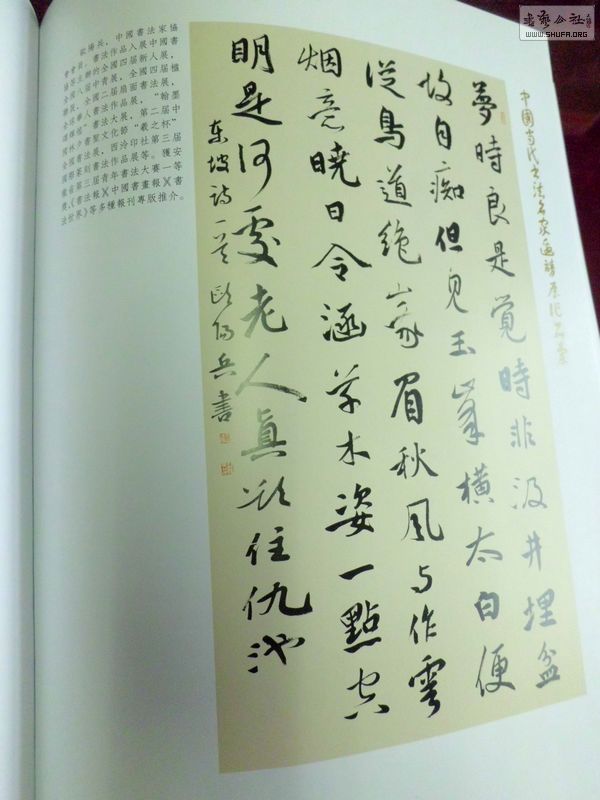 書藝公社
WWW.SHUFA.ORG
夢時良是覺時非汲井埋盆
故自痴但見玉峯橫太白便
從鳥道絕峩眉秋風与作雲
烟意曉日令涵草木姿一點空
明是何處老人真欲住仇池
東坡詩一首 歐陽兵書
歐陽兵，中國書法家協
會會員，書法作品入展中國書
協主辦的全國四届新人展，
全國八届中青展，全國四届楹
全國二届扇面書法展，
全球華人書法作品展，“翰墨
書法大展，第二届中
國書聖文化節“羲之杯”
全國書法展，西泠印社第三届
國際篆刻書法作品展等。獲安
徽省第三届青年書法大賽一等
奬。《書法報》《中國書畫報》《書
法世界》等多種報刊專版推介。